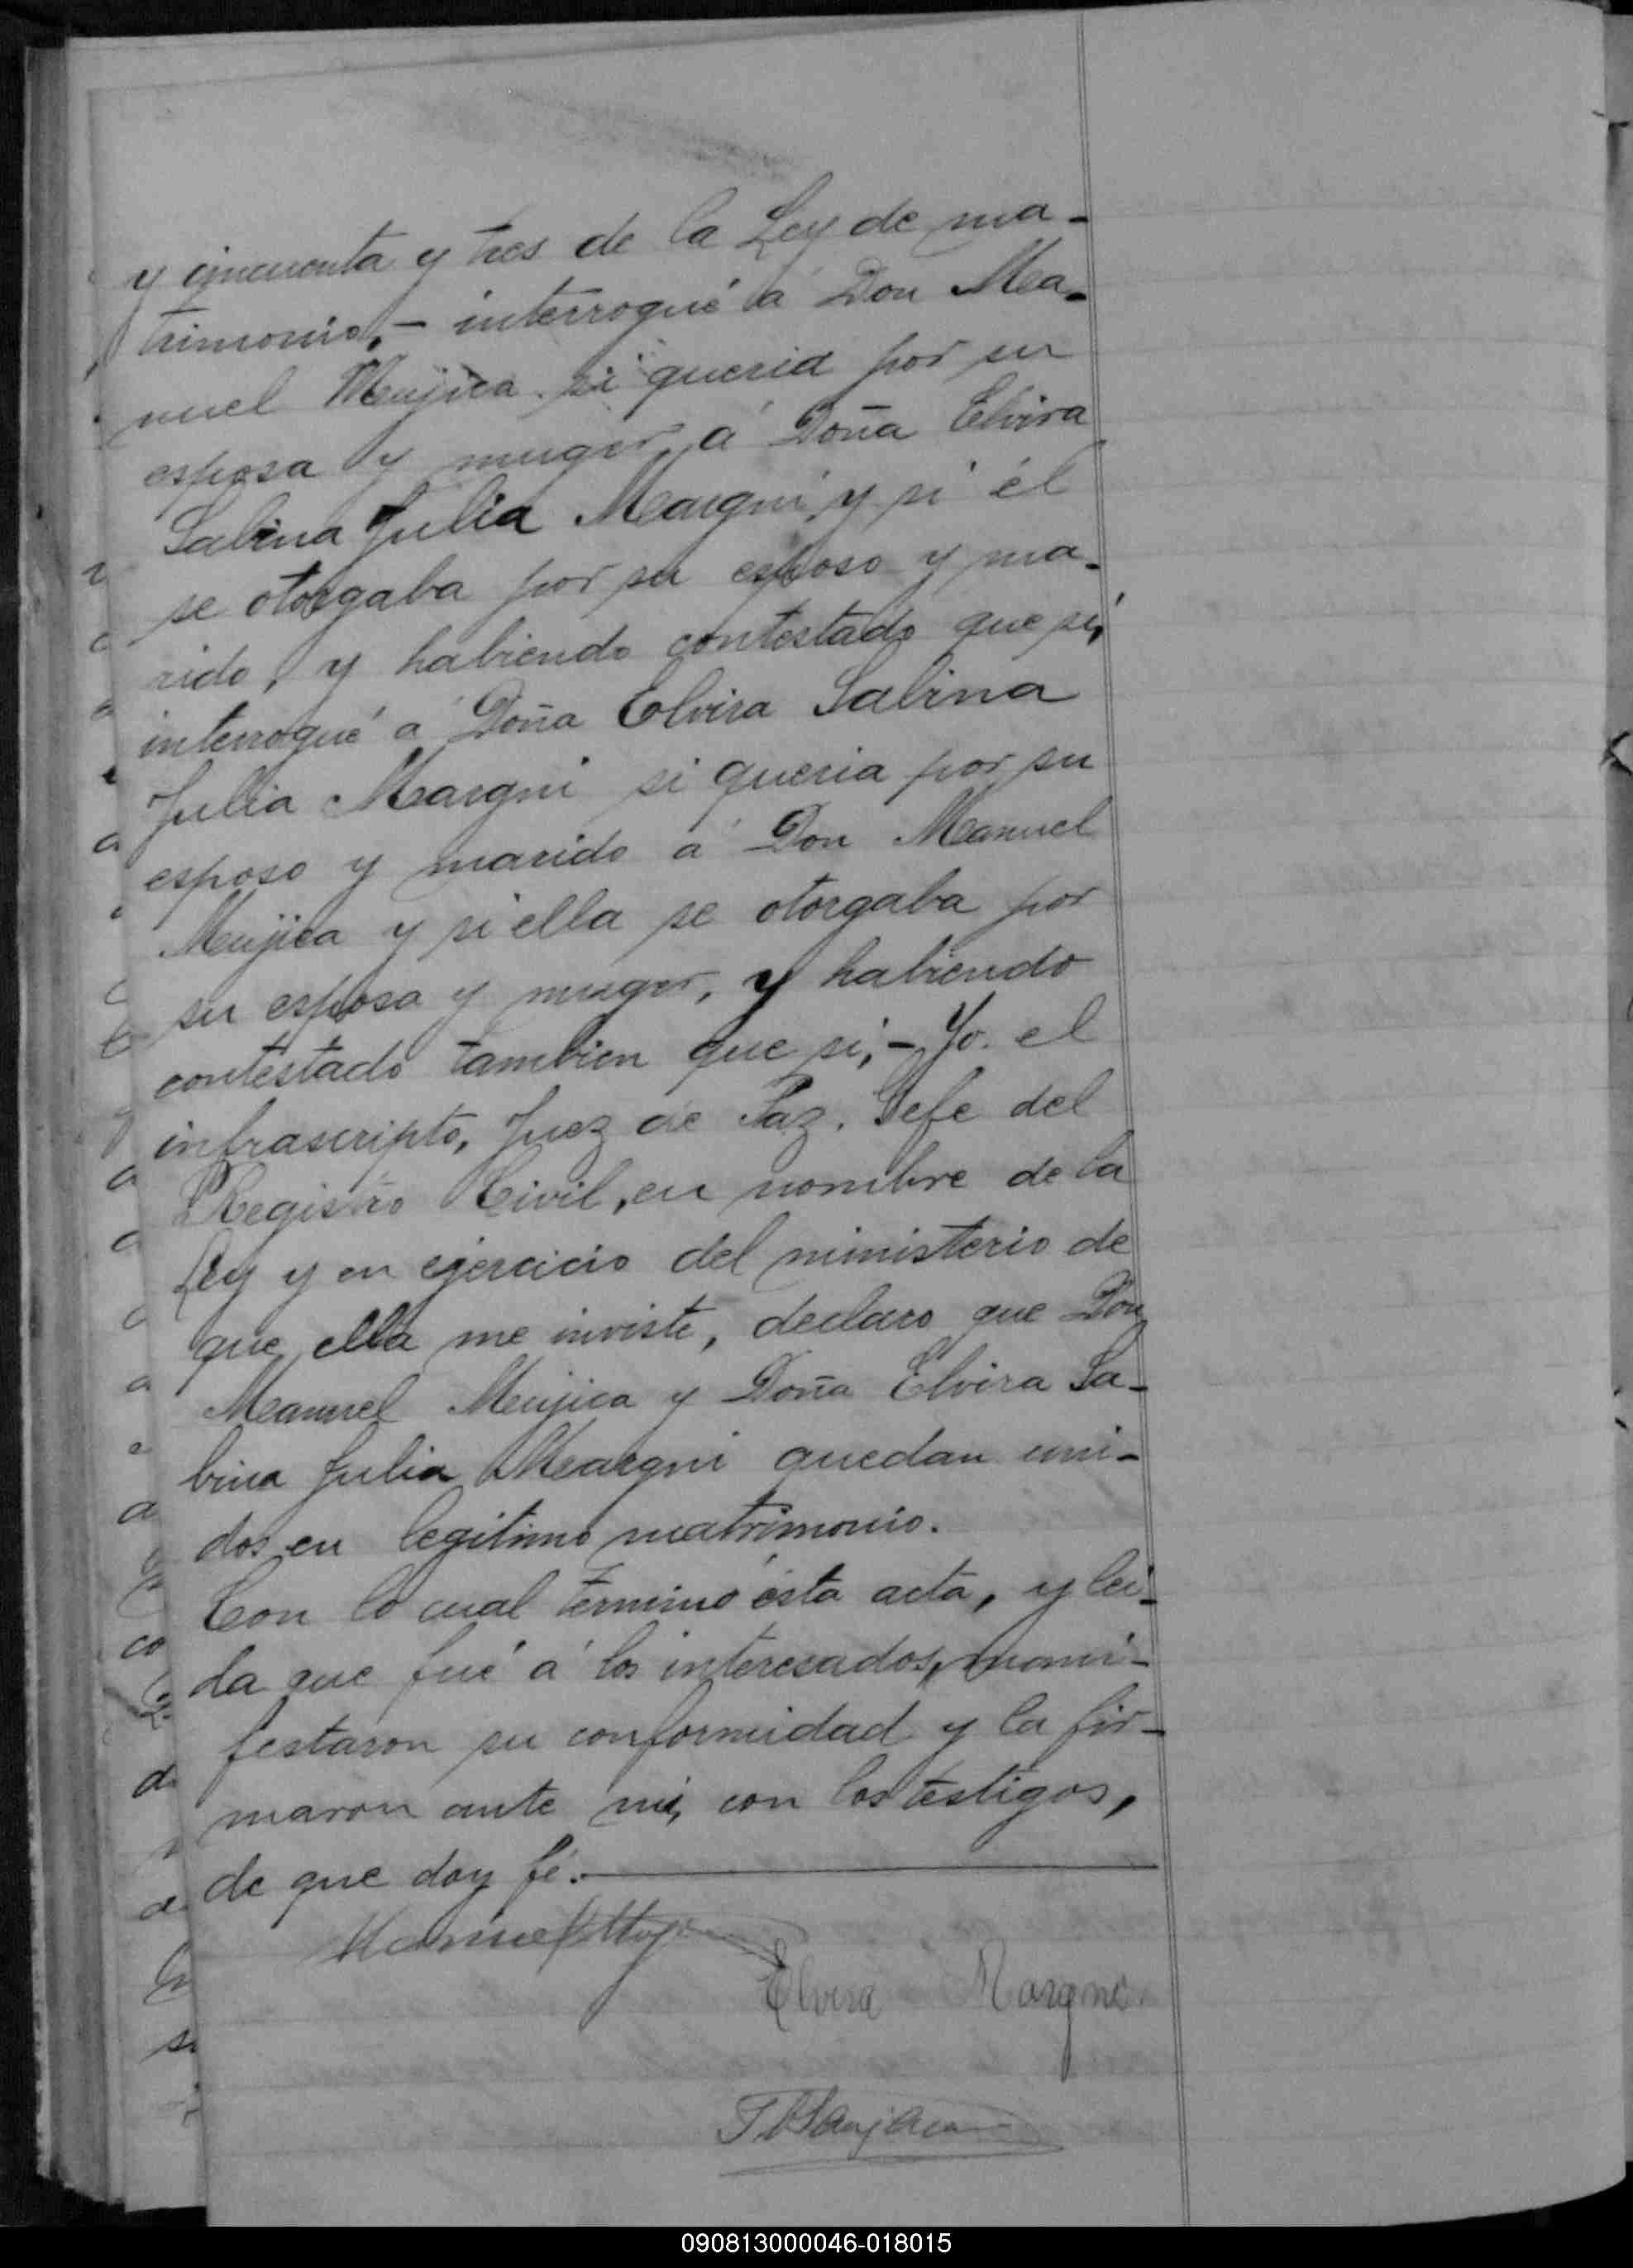 y cincuenta y tres de la Ley de ma-
trimonio, - interrogué á Don Ma-
nuel Mujica si queria por su
esposa y muger á Doña Elvira
Sabina Julia Margni y si él
se otorgaba por su esposo y ma-
rido, y habiendo contestado que si,
interrogué á Doña Elvira Sabina
Julia Margni si queria por su
esposo y marido á Don Manuel
Mujica y si ella se otorgaba por
su esposa y muger, y habiendo
contestado tambien que si, - Yo el
infrascripto, Juez de Paz, Gefe del
Registro Civil, en nombre de la
Ley y en ejercicio del ministerio de
que ella me inviste, declaro que Don
Manuel Mujica y Doña Elvira Sa-
bina Julia Margni quedan uni-
dos en legitimo matrimonio.
Con lo cual terminó esta acta, y lei-
da que fué á los interesados, mani-
festaron su conformidad y la fir-
maron ante mi, con los testigos,
de que doy fé.
Manuel
Elvira Margni
090813000046-018015